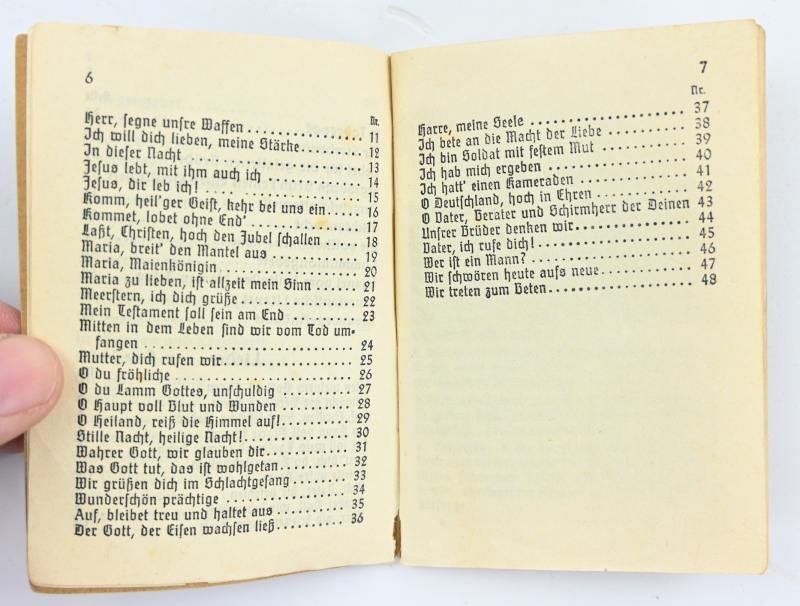 6
Nr.
Herr, segne unsre Waffen . . . . . . . . . . . . . . . 11
Ich will dich lieben, meine Stärke . . . . . . . . . . 12
In dieser Nacht . . . . . . . . . . . . . . . . . . . . 13
Jesus lebt, mit ihm auch ich . . . . . . . . . . . . . 14
Jesus, dir leb ich! . . . . . . . . . . . . . . . . . . 15
Komm, heil'ger Geist, kehr bei uns ein . . . . . . . . 16
Kommet, lobet ohne End' . . . . . . . . . . . . . . . . 17
Laßt, Christen, hoch den Jubel schallen . . . . . . . . 18
Maria, breit' den Mantel aus . . . . . . . . . . . . . 19
Maria, Maienkönigin . . . . . . . . . . . . . . . . . . 20
Maria zu lieben, ist allzeit mein Sinn . . . . . . . . 21
Meerstern, ich dich grüße . . . . . . . . . . . . . . . 22
Mein Testament soll sein am End . . . . . . . . . . . . 23
Mitten in dem Leben sind wir vom Tod um-
fangen . . . . . . . . . . . . . . . . . . . . . . . . 24
Mutter, dich rufen wir . . . . . . . . . . . . . . . . 25
O du fröhliche . . . . . . . . . . . . . . . . . . . . 26
O du Lamm Gottes, unschuldig . . . . . . . . . . . . . 27
O Haupt voll Blut und Wunden . . . . . . . . . . . . . 28
O Heiland, reiß die Himmel auf! . . . . . . . . . . . . 29
Stille Nacht, heilige Nacht! . . . . . . . . . . . . . 30
Wahrer Gott, wir glauben dir . . . . . . . . . . . . . 31
Was Gott tut, das ist wohlgetan . . . . . . . . . . . . 32
Wir grüßen dich im Schlachtgesang . . . . . . . . . . . 33
Wunderschön prächtige . . . . . . . . . . . . . . . . . 34
Auf, bleibet treu und haltet aus . . . . . . . . . . . 35
Der Gott, der Eisen wachsen ließ . . . . . . . . . . . 36
7
Nr.
Harre, meine Seele . . . . . . . . . . . . . . . . . . 37
Ich bete an die Macht der Liebe . . . . . . . . . . . . 38
Ich bin Soldat mit festem Mut . . . . . . . . . . . . . 39
Ich hab mich ergeben . . . . . . . . . . . . . . . . . 40
Ich hatt' einen Kameraden . . . . . . . . . . . . . . . 41
O Deutschland, hoch in Ehren . . . . . . . . . . . . . 42
O Vater, Berater und Schirmherr der Deinen 43
Unsrer Brüder denken wir . . . . . . . . . . . . . . . 44
Vater, ich rufe dich! . . . . . . . . . . . . . . . . . 45
Wer ist ein Mann? . . . . . . . . . . . . . . . . . . . 46
Wir schwören heute aufs neue . . . . . . . . . . . . . 47
Wir treten zum Beten . . . . . . . . . . . . . . . . . 48